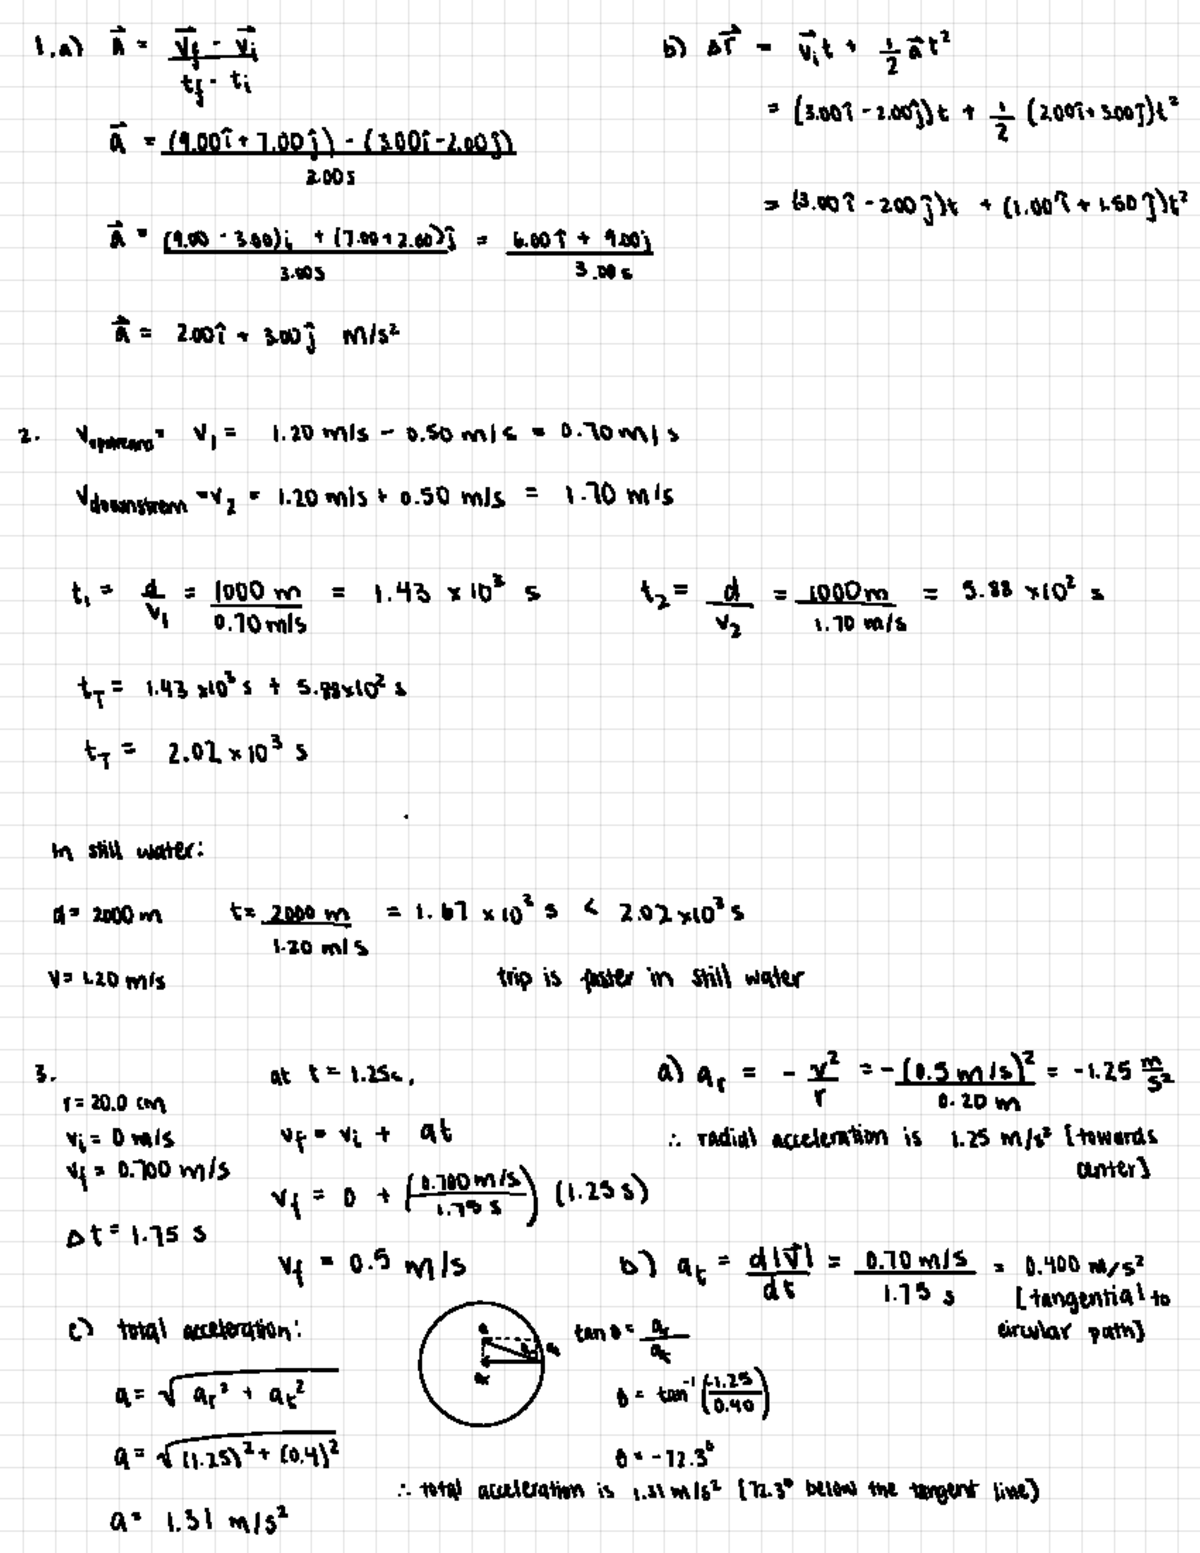 1. a) a⃗ = (v⃗f - v⃗i) / (tf - ti)
a⃗ = ((9.00î + 7.00ĵ) - (3.00î - 2.00ĵ)) / 3.00s
a⃗ = ((9.00 - 3.00)î + (7.00 + 2.00)ĵ) / 3.00s = (6.00î + 9.00ĵ) / 3.00s
a⃗ = 2.00î + 3.00ĵ m/s²
b) Δr⃗ = v⃗it + 1/2 a⃗t²
= (3.00î - 2.00ĵ)t + 1/2 (2.00î + 3.00ĵ)t²
= (3.00î - 2.00ĵ)t + (1.00î + 1.50ĵ)t²
2. Vupstream = V₁ = 1.20 m/s - 0.50 m/s = 0.70 m/s
Vdownstream = V₂ = 1.20 m/s + 0.50 m/s = 1.70 m/s
t₁ = d/V₁ = 1000 m / 0.70 m/s = 1.43 × 10³ s
t₂ = d/V₂ = 1000 m / 1.70 m/s = 5.88 × 10² s
tT = 1.43 × 10³ s + 5.88 × 10² s
tT = 2.02 × 10³ s
In still water:
d = 2000 m t = 2000 m / 1.20 m/s = 1.67 × 10³ s < 2.02 × 10³ s
V = 1.20 m/s trip is faster in still water
3.
r = 20.0 cm
vi = 0 m/s
vf = 0.700 m/s
Δt = 1.75 s
at t = 1.25s,
vf = vi + at
vf = 0 + (0.700 m/s / 1.75 s) (1.25 s)
vf = 0.5 m/s
a) ar = - v²/r = - (0.5 m/s)² / 0.20 m = -1.25 m/s²
∴ radial acceleration is 1.25 m/s² [towards
center]
b) at = d|v⃗|/dt = 0.70 m/s / 1.75 s = 0.400 m/s²
[tangential to
circular path]
c) total acceleration:
a = √(ar² + at²)
a = √((1.25)² + (0.4)²)
a = 1.31 m/s²
a
θ
at
ar
tan θ = ar/at
θ = tan⁻¹(-1.25/0.40)
θ = -72.3°
∴ total acceleration is 1.31 m/s² [72.3° below the tangent line]